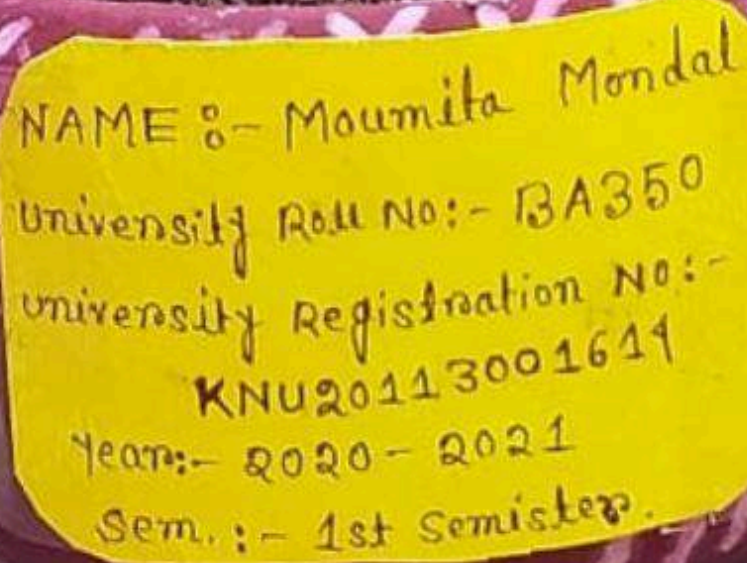 NAME :- Moumita Mondal
University Roll No:- BA350
University Registration No:-
KNU20113001614
Year:- 2020- 2021
Sem. :- 1st Semister.